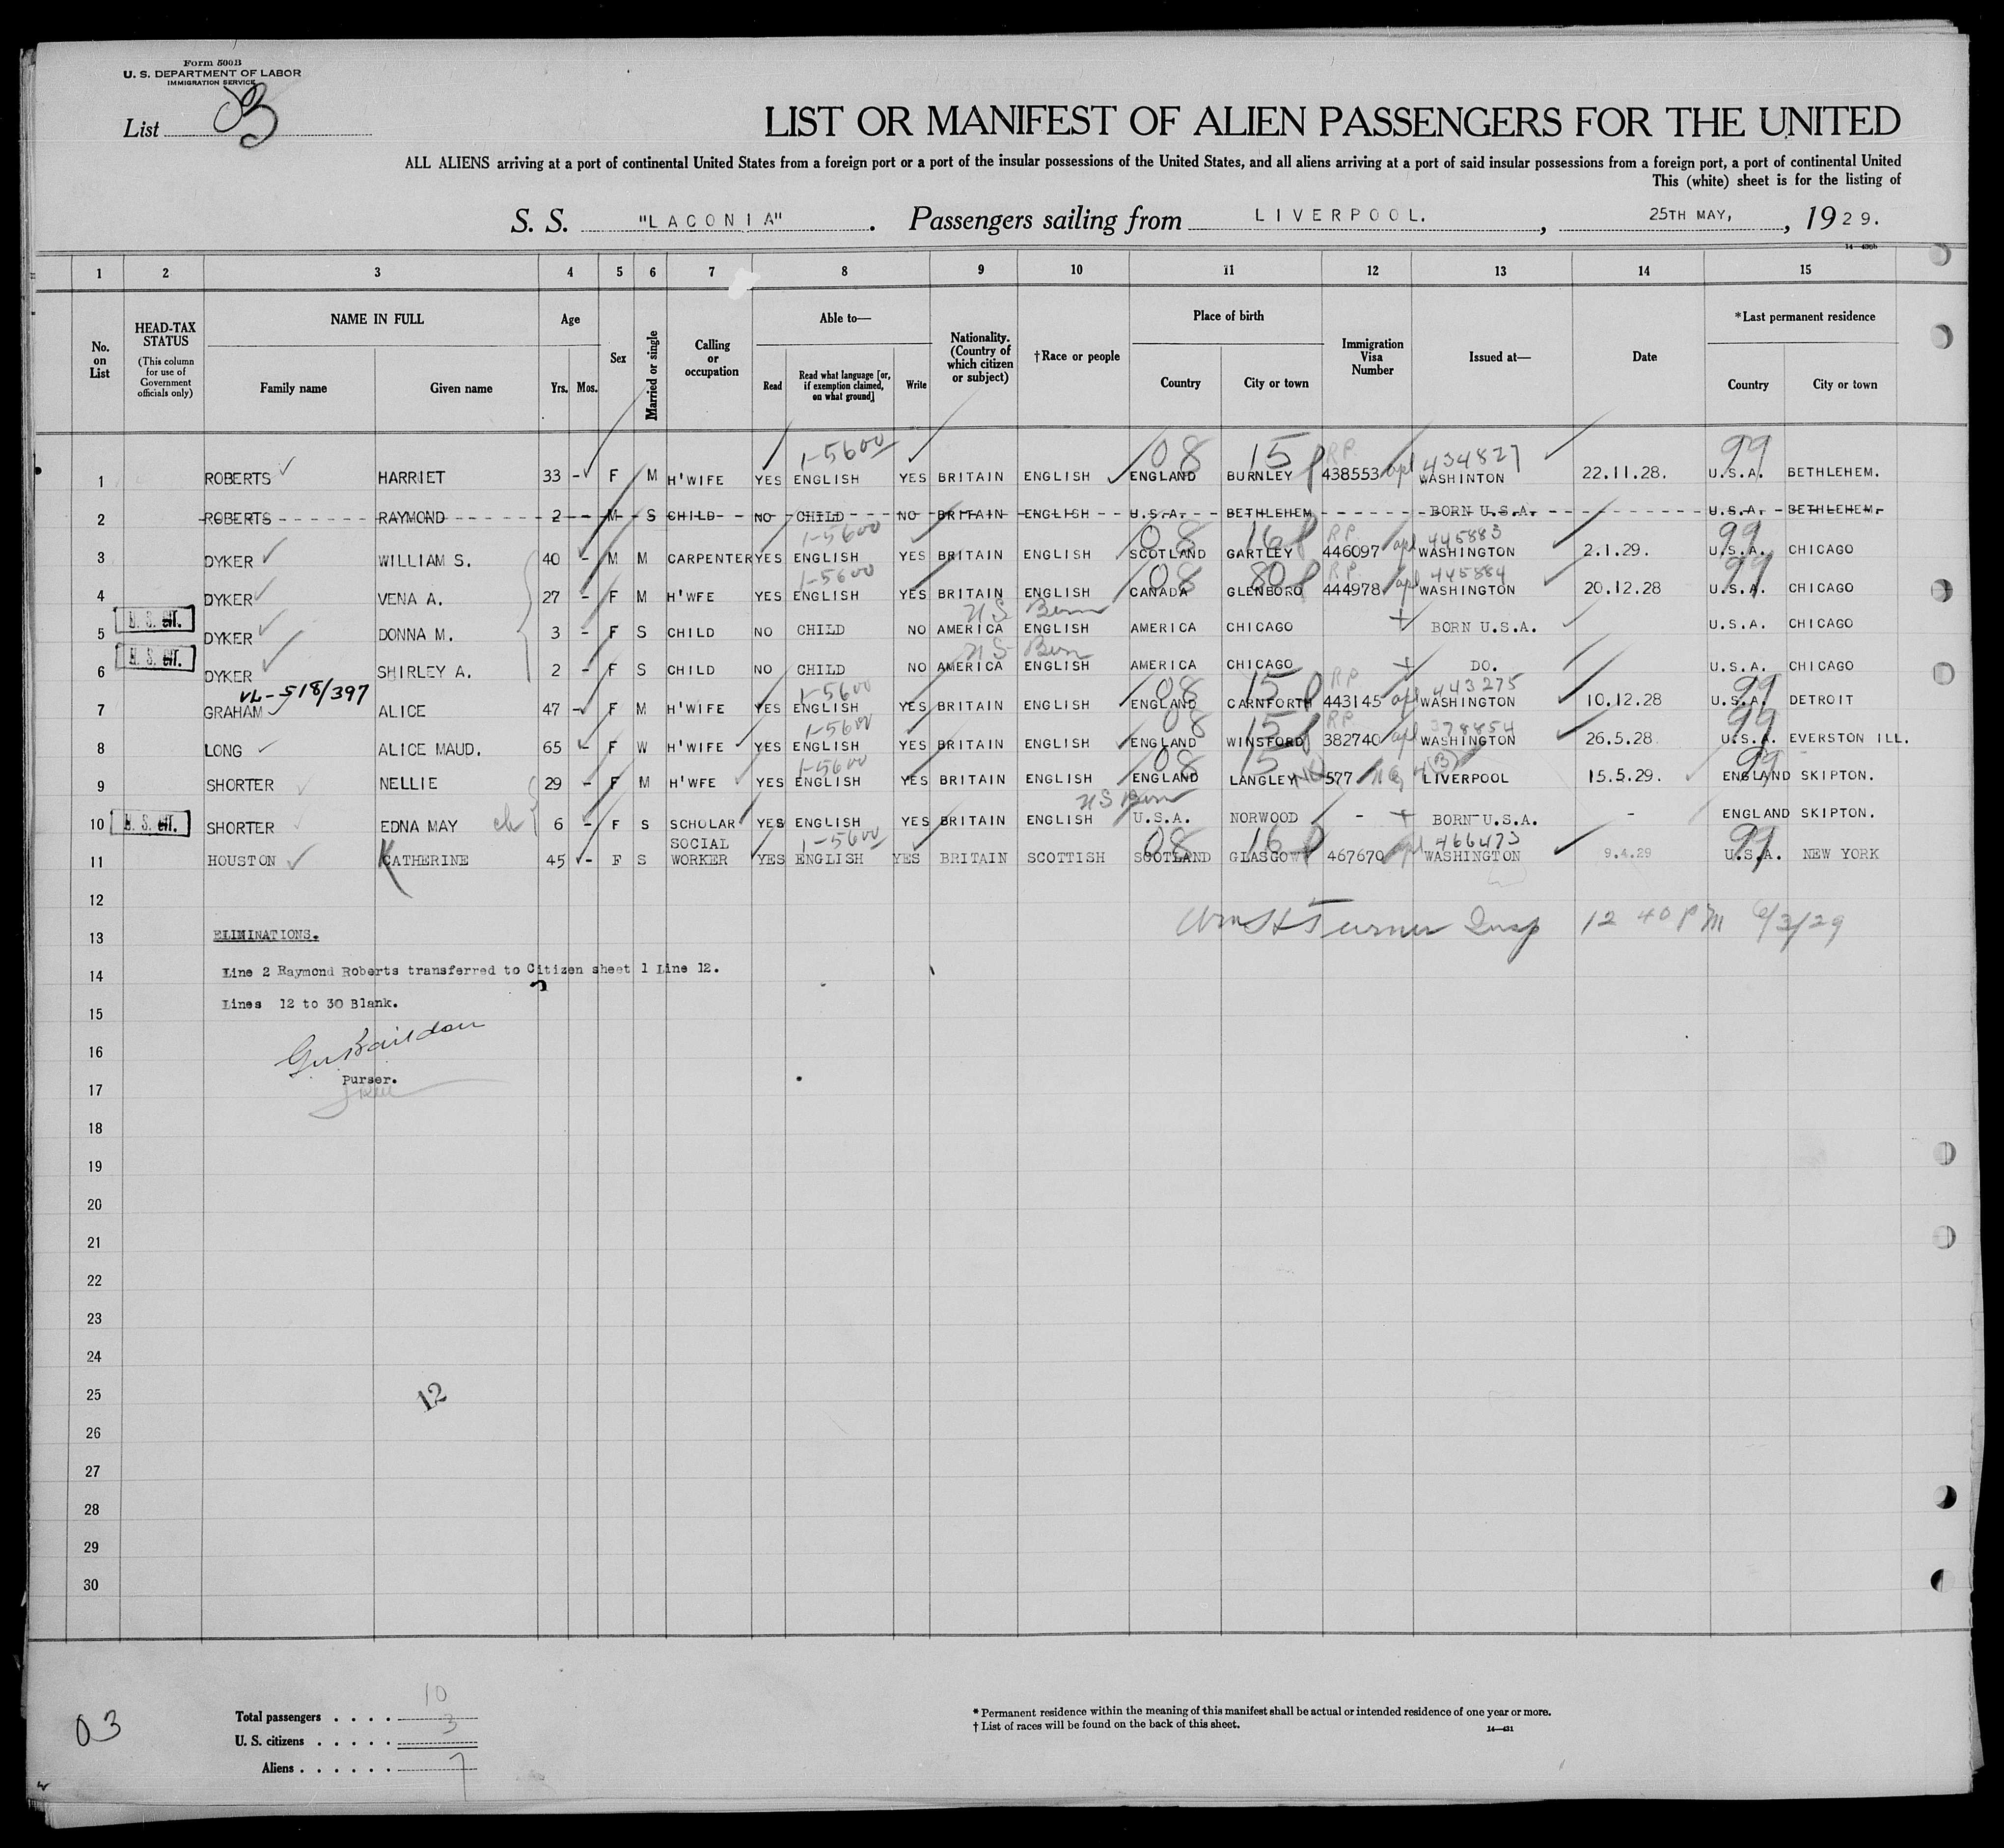 Form 500B
U. S. DEPARTMENT OF LABOR
IMMIGRATION SERVICE
List
LIST OR MANIFEST OF ALIEN PASSENGERS FOR THE UNITED
ALL ALIENS arriving at a port of continental United States from a foreign port or a port of the insular possessions of the United States, and all aliens arriving at a port of said insular possessions from a foreign port, a port of continental United
This (white) sheet is for the listing of
S. S. "LACONIA". Passengers sailing from LIVERPOOL. , 25TH MAY, , 1929.
1 2 3 4 5 6 7 8 9 10 11 12 13 14 15
No. on List
HEAD-TAX STATUS (This column for use of Government officials only)
NAME IN FULL
Family name Given name
Age
Yrs. Mos.
Sex
Married or single
Calling or occupation
Able to—
Read Read what language [or, if exemption claimed, on what ground] Write
Nationality. (Country of which citizen or subject)
†Race or people
Place of birth
Country City or town
Immigration Visa Number
Issued at—
Date
*Last permanent residence
Country City or town
1-5600 08 15 RP 434827 99
1 ROBERTS HARRIET 33 - F M H'WIFE YES ENGLISH YES BRITAIN ENGLISH ENGLAND BURNLEY 438553 WASHINTON 22.11.28. U.S.A. BETHLEHEM.
2 ROBERTS RAYMOND 2 - M S CHILD NO CHILD NO BRITAIN ENGLISH U.S.A. BETHLEHEM BORN U.S.A. U.S.A. BETHLEHEM.
1-5600 08 16 RP 445883 99
3 DYKER WILLIAM S. 40 - M M CARPENTER YES ENGLISH YES BRITAIN ENGLISH SCOTLAND GARTLEY 446097 WASHINGTON 2.1.29. U.S.A. CHICAGO
1-5600 08 80 RP 445884 99
4 DYKER VENA A. 27 - F M H'WFE YES ENGLISH YES BRITAIN ENGLISH CANADA GLENBORO 444978 WASHINGTON 20.12.28 U.S.A. CHICAGO
U. S. CIT. US Born
5 DYKER DONNA M. 3 - F S CHILD NO CHILD NO AMERICA ENGLISH AMERICA CHICAGO BORN U.S.A. U.S.A. CHICAGO
U. S. CIT. US Born
6 DYKER SHIRLEY A. 2 - F S CHILD NO CHILD NO AMERICA ENGLISH AMERICA CHICAGO DO. U.S.A. CHICAGO
VL-518/397 1-5600 08 15 RP 443275 99
7 GRAHAM ALICE 47 - F M H'WIFE YES ENGLISH YES BRITAIN ENGLISH ENGLAND CARNFORTH 443145 WASHINGTON 10.12.28 U.S.A. DETROIT
1-5600 08 15 RP 378854 99
8 LONG ALICE MAUD. 65 - F W H'WIFE YES ENGLISH YES BRITAIN ENGLISH ENGLAND WINSFORD 382740 WASHINGTON 26.5.28 U.S.A. EVERSTON ILL.
1-5600 08 15 99
9 SHORTER NELLIE 29 - F M H'WFE YES ENGLISH YES BRITAIN ENGLISH ENGLAND LANGLEY 577 LIVERPOOL 15.5.29. ENGLAND SKIPTON.
US Born
10 U. S. CIT. SHORTER EDNA MAY ch 6 - F S SCHOLAR YES ENGLISH YES BRITAIN ENGLISH U.S.A. NORWOOD - BORN U.S.A. - ENGLAND SKIPTON.
SOCIAL 1-5600 08 16 466473 99
11 HOUSTON KCATHERINE 45 - F S WORKER YES ENGLISH YES BRITAIN SCOTTISH SCOTLAND GLASGOW 467670 WASHINGTON 9.4.29 U.S.A. NEW YORK
12
Wm H Turner Insp 12 40 PM 6/3/29
13 ELIMINATIONS.
14 Line 2 Raymond Roberts transferred to Citizen sheet 1 Line 12.
15 Lines 12 to 30 Blank.
16
Purser.
17
18
19
20
21
22
23
24
25
12
26
27
28
29
30
03
Total passengers . . . . 10
U. S. citizens . . . . . 3
Aliens . . . . . . 7
* Permanent residence within the meaning of this manifest shall be actual or intended residence of one year or more.
† List of races will be found on the back of this sheet.
14—431